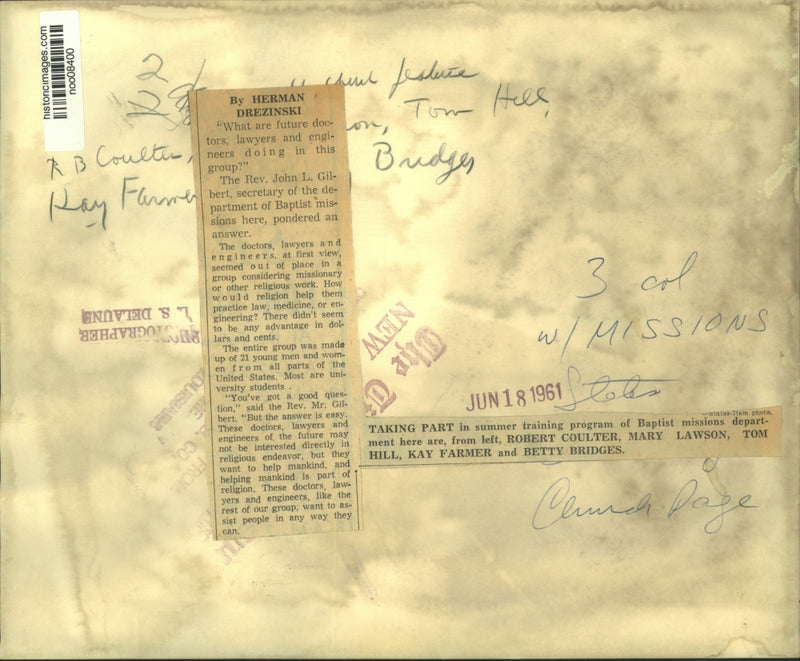 historicimages.com
noo08400
2
feature
Tom Hill,
R B Coulter,
Bridges
Kay Farmer
By HERMAN
DREZINSKI
"What are future doc-
tors, lawyers and engi-
neers doing in this
group?"
The Rev. John L. Gil-
bert, secretary of the de-
partment of Baptist mis-
sions here, pondered an
answer.
The doctors, lawyers and
engineers, at first view,
seemed out of place in a
group considering missionary
or other religious work. How
would religion help them
practice law, medicine, or en-
gineering? There didn't seem
to be any advantage in dol-
lars and cents.
The entire group was made
up of 21 young men and wom-
en from all parts of the
United States. Most are uni-
versity students.
"You've got a good ques-
tion," said the Rev. Mr. Gil-
bert. "But the answer is easy.
These doctors, lawyers and
engineers of the future may
not be interested directly in
religious endeavor, but they
want to help mankind, and
helping mankind is part of
religion. These doctors, law-
yers and engineers, like the
rest of our group, want to as-
sist people in any way they
can.
PHOTOGRAPHER
L. S. DELAUNE
The
NEW
3 col
w/ MISSIONS
JUN 18 1961
States
—States-Item photo.
TAKING PART in summer training program of Baptist missions depart-
ment here are, from left, ROBERT COULTER, MARY LAWSON, TOM
HILL, KAY FARMER and BETTY BRIDGES.
Church Page